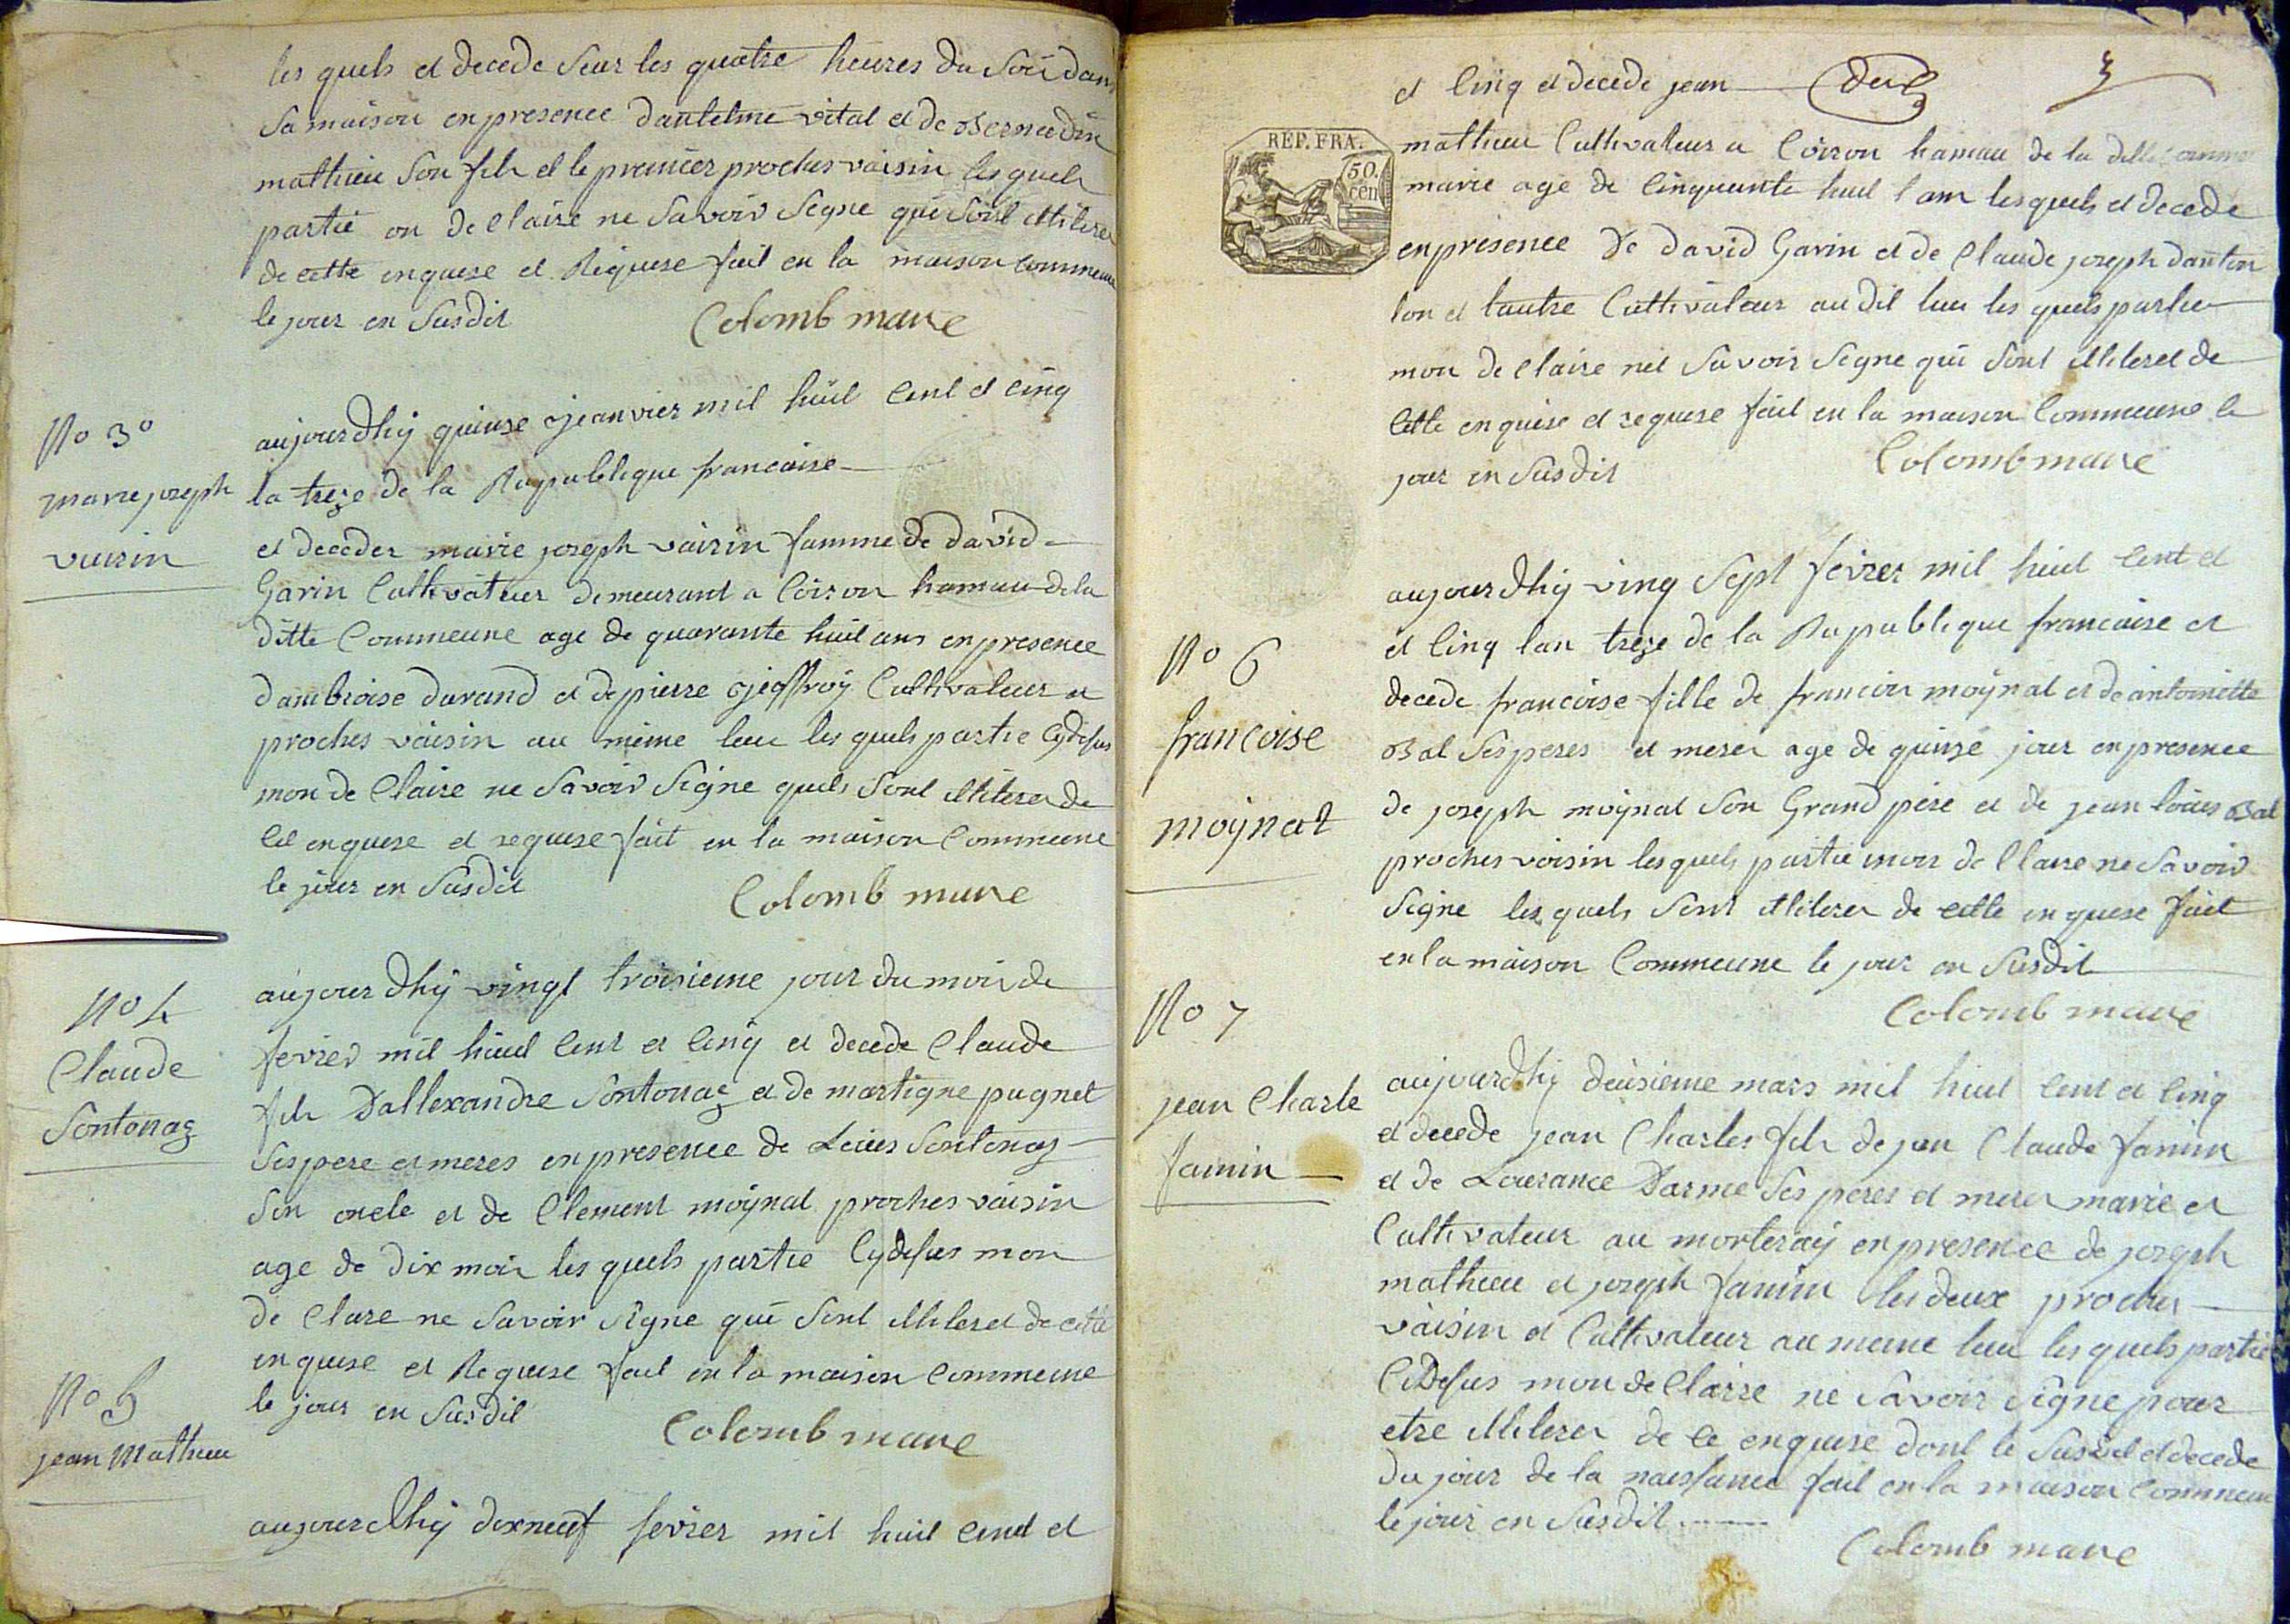 les quels et decede seur les quatre heures du soir dans
sa maison en presence dantelme vital et de Bernadin
mathieu son fils et le premier proches voisin les quels
partie on de claire ne savoir signe qui sont illiterer
de cette enquise et Requise fait en la maison commeune
le jour en susdit
Colomb maire
No 3o
marie joseph
vuirin
aujourdhÿ quinse gjeanvier mil huit cent et cinq
la treze de la Republique francaise
et deceder marie joseph voirin famme de david
Garin Cultivateur demeurant a Coiron hamau de la
ditte Commeune age de quarante huit ans en presence
dambroise durand et de pierre gjeoffroÿ Cultivateur et
proches voisin au même lieu les quels partie Cydesus
mon de Claire ne savoir signe quels sont illiterer de
cet enquise et requise fait en la maison Commeune
le jour en susdit
Colomb maire
No 4
Claude
Sontonaz
aujourdhÿ vingt troisieme jour du mois de
fevrier mil huit cent et cinq et decede Claude
fils Dallexandre Sontonaz et de martigne pugnet
ses pere et meres en presence de Leuies Sontonaz
son oncle et de Clement moÿnat proches voisin
age de dix mois les quels partie Cydesus mon
de Clare ne savoir signe qui sont illileret de cette
enquise et Requise fait en la maison Commeune
le jour en susdit
Colomb maire
No 5
jean Mathieu
aujourdhÿ dixneuf fevrier mil huit cent et
et Cinq et decede jean
mathieu Cultivateur a Coiron hamau de la ditte comme
marie age de Cinquante huit l'am lesquels et decede
en presence de david Garin et de Claude joseph dantin
lon et lautre Cultivateur au dit lieu les quels partie
mon de Claire net savoir signe qui sont illileret de
cette enquise et requise fait en la maison Commeune le
jour en susdit
Colomb maire
REP. FRA.
50.
cen
No 6
francoise
moÿnat
aujourdhÿ ving sept fevrier mil huit cent et
et Cinq lan treze de la Republique francaise et
decede francoise fille de francois moÿnat et de antoinette
Bal ses peres et merer age de quinze jour en presence
de joseph moÿnat son Grand pere et de jean louies Bal
proches voisin lesquels partie mon de Claire ne savoir
signe les quels sont illilerer de cette enquise fait
en la maison Commeune le jour en susdit
Colomb maire
No 7
jean Charle
famin
aujourdhÿ deusieme mars mil huit cent et cinq
et decede jean Charles fils de jean Claude famin
et de Lourance Darme ses peres et merer marie et
Cultivateur au morteraÿ en presence de joseph
mathieu et joseph famin les deux proches
voisin et Cultivateur au meme lieu les quels partie
Cidesus mon de Clairre ne savoir signe pour
etre illilerer de ce enquise dont le susdit et decede
du jour de la naissance fait en la maison Commeune
le jour en susdit
Colomb maire